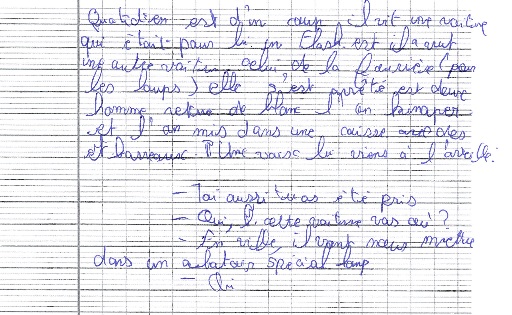 Quotidien est d'un coup, il vit une voiture
qui était pour lui un Flash est il a vut
une autre voiture celui de la Fourrière (pour
les loups) elle s'est arrêté est deux
homme de blanc l'on kinaper
et l'on mis dans une caisse des
et barreaux. Une voix lui viens à l'oreille.
- Toi aussi tu as été pris
- Oui, cette voiture vas où ?
- En ville, il vont nous mettre
dans un abatoir spécial loup
- Oui